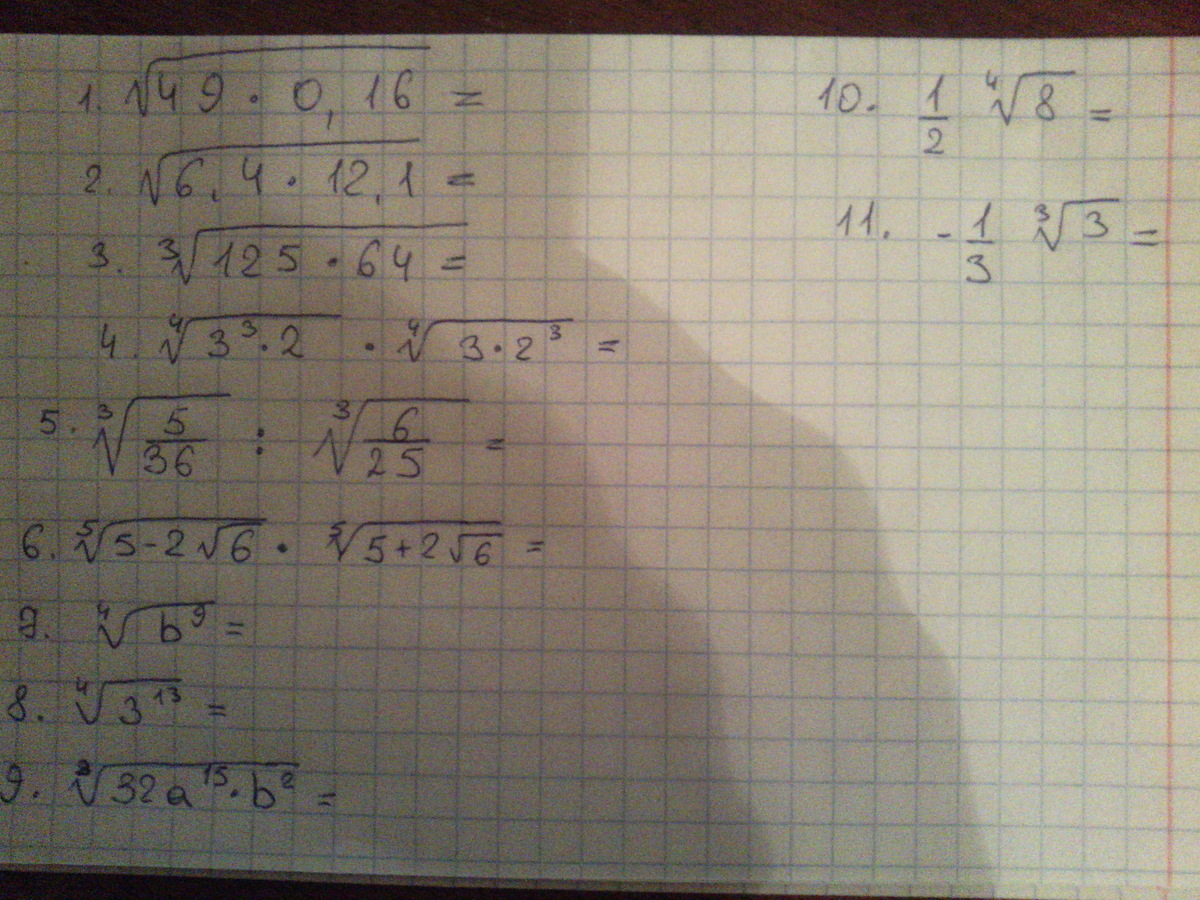 1. √(49 · 0,16) =
2. √(6,4 · 12,1) =
3. ∛(125 · 64) =
4. ∜(3³ · 2) · ∜(3 · 2³) =
5. ∛(5/36) : ∛(6/25) =
6. ⁵√(5-2√6) · ⁵√(5+2√6) =
7. ∜(b⁹) =
8. ∜(3¹³) =
9. ∛(32a¹⁵ · b²) =
10. 1/2 ∜8 =
11. -1/3 ∛3 =